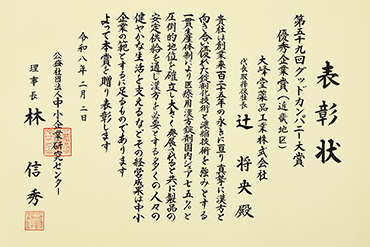 表彰状
第五十九回グッドカンパニー大賞
優秀企業賞（近畿地区）
大峰堂薬品工業株式会社
代表取締役社長
辻 将央 殿
貴社は創業来百二十五年の永きに亘り真摯に漢方と
向き合い優れた錠剤化技術と濃縮技術を強みとする
一貫生産体制により医療用漢方錠剤国内シェア七五％と
圧倒的地位を確立し大きく発展されると共に製品の
安定供給を通じ漢方を必要とする多くの人々の
健やかな生活を支えるなどその経営成果は中小
企業の範とするに足るものであります
よって本賞を贈り表彰します
令和八年二月二日
公益社団法人中小企業研究センター
理事長 林 信秀